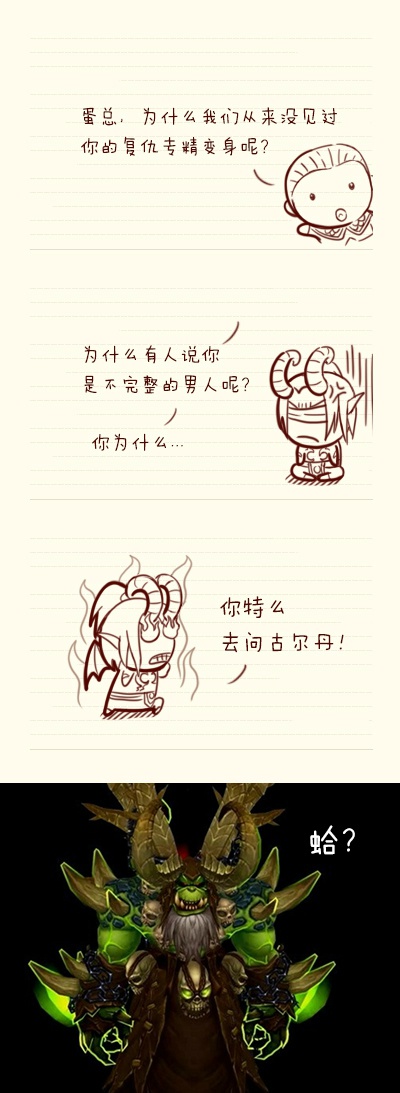 蛋总，为什么我们从来没见过
你的复仇专精变身呢？
为什么有人说你
是不完整的男人呢？
你为什么…
你特么
去问古尔丹！
蛤？